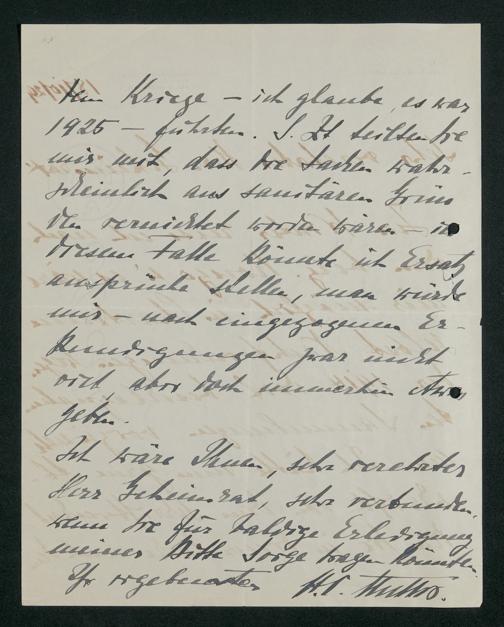 dem Kriege – ich glaube, es war
1925 – führten. S. Zt teilten Sie
mir mit, dass die Sachen wahr-
scheinlich aus sanitären Grün
den vernichtet worden wären – in
diesem Falle könnte ich Ersatz
ansprüche stellen, man würde
mir – nach eingezogenen Er-
kundigungen zwar nicht
viel, aber doch immerhin etwas
geben.
Ich wäre Ihnen, sehr verehrter
Herr Geheimrat, sehr verbunden,
wenn Sie für baldige Erledigung
meiner Bitte Sorge tragen könnten.
Ihr ergebenster H.